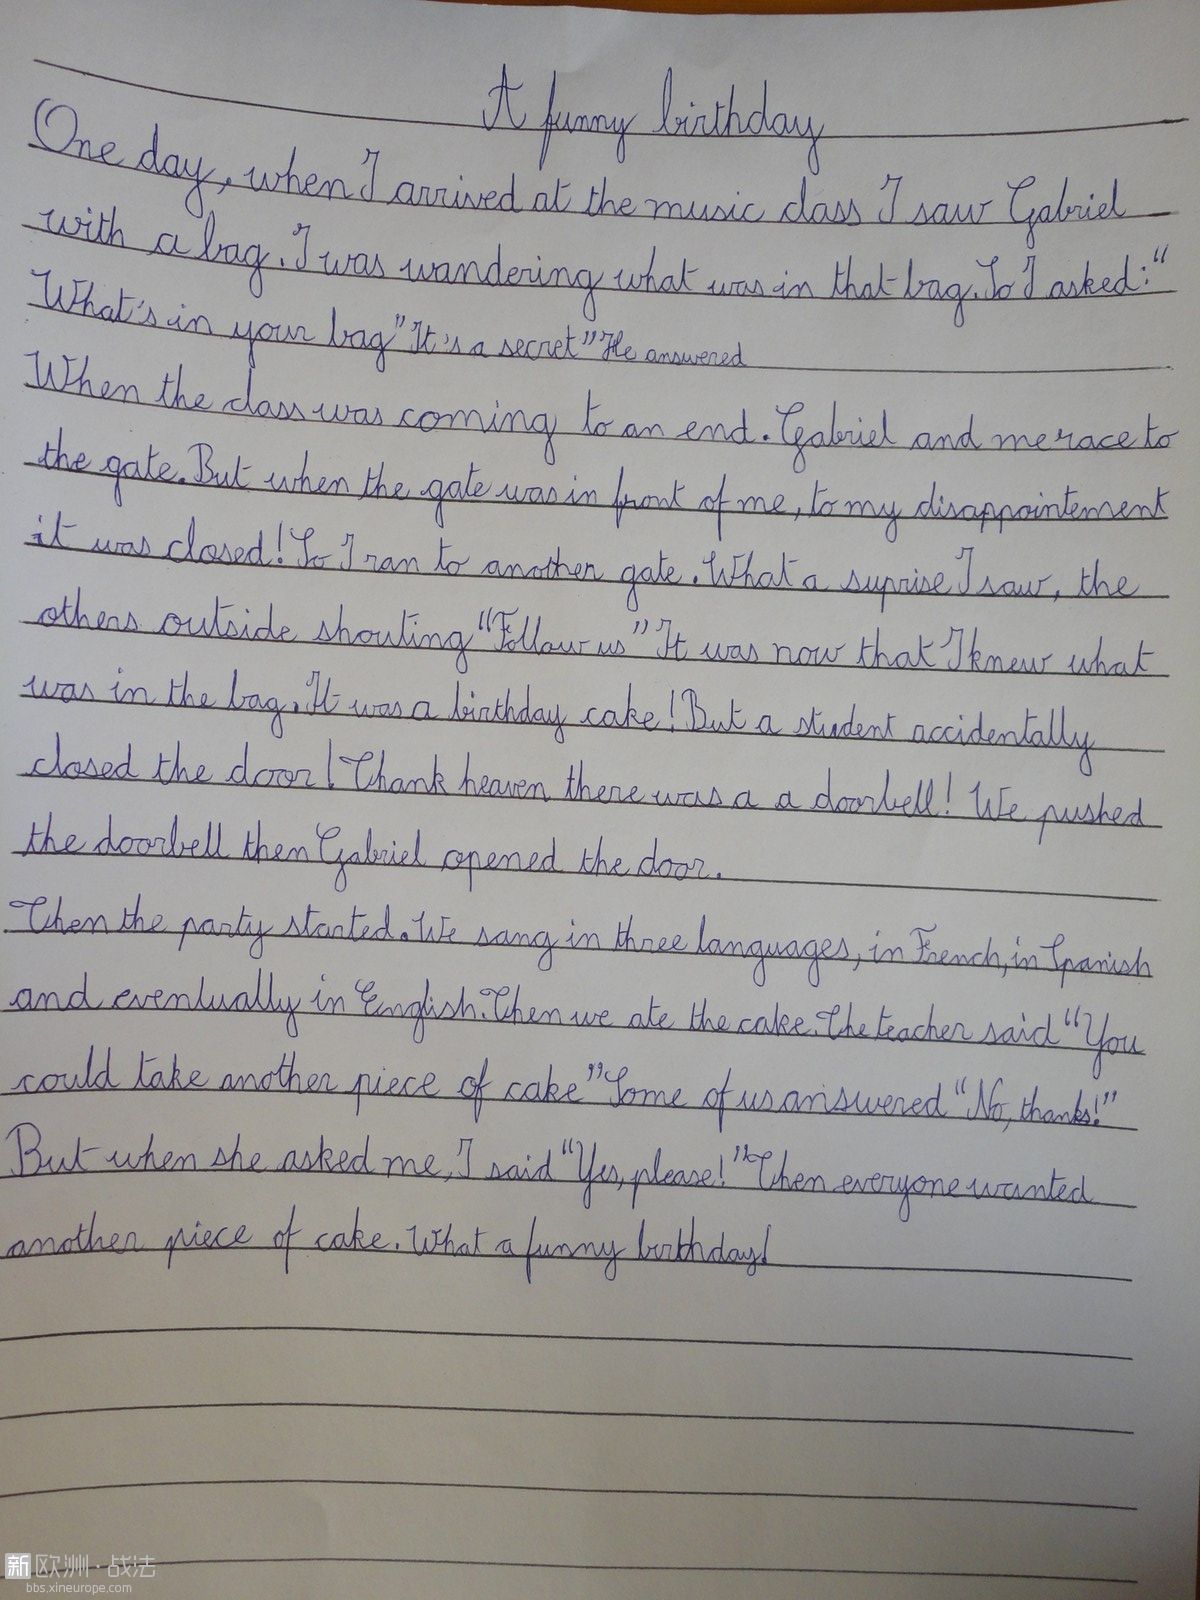 A funny birthday
One day, when I arrived at the music class I saw Gabriel
with a bag. I was wandering what was in that bag. So I asked: “
What's in your bag” “It's a secret” He answered
When the class was coming to an end. Gabriel and me race to
the gate. But when the gate was in front of me, to my disappointement
it was closed! So I ran to another gate. What a suprise I saw, the
others outside shouting “Follow us” It was now that I knew what
was in the bag. It was a birthday cake! But a student accidentally
closed the door! Thank heaven there was a a doorbell! We pushed
the doorbell then Gabriel opened the door.
Then the party started. We sang in three languages, in French, in Spanish
and eventually in English. Then we ate the cake. The teacher said “You
could take another piece of cake” Some of us answered “No, thanks!”
But when she asked me, I said “Yes, please!” Then everyone wanted
another piece of cake. What a funny birthday!
新欧洲·战法
bbs.xineurope.com